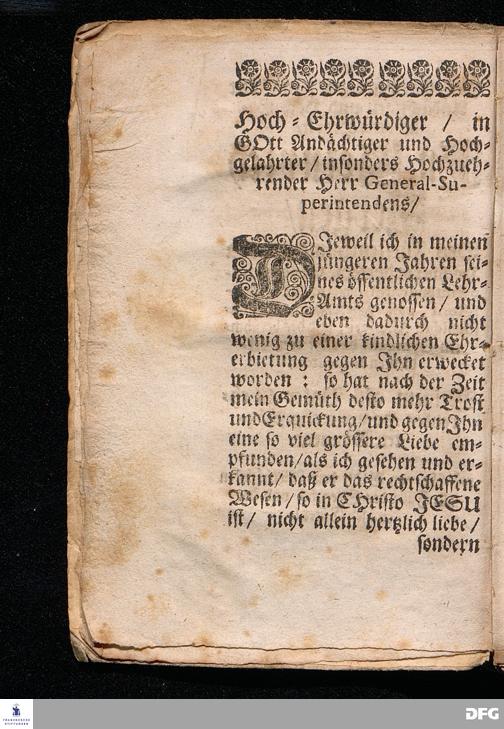 Hoch-Ehrwürdiger / in
GOtt Andächtiger und Hoch-
gelahrter / insonders Hochzueh-
render Herr General-Su-
perintendens /
DJeweil ich in meinen
jüngeren Jahren sei-
nes öffentlichen Lehr-
Amts genossen / und
eben dadurch nicht
wenig zu einer kindlichen Ehr-
erbietung gegen Jhn erwecket
worden : so hat nach der Zeit
mein Gemüth desto mehr Trost
und Erquickung / und gegen Jhn
eine so viel grössere Liebe em-
pfunden / als ich gesehen und er-
kannt / daß er das rechtschaffene
Wesen / so in CHristo JESU
ist / nicht allein hertzlich liebe /
sondern
FRANCKESCHE
STIFTUNGEN
DFG